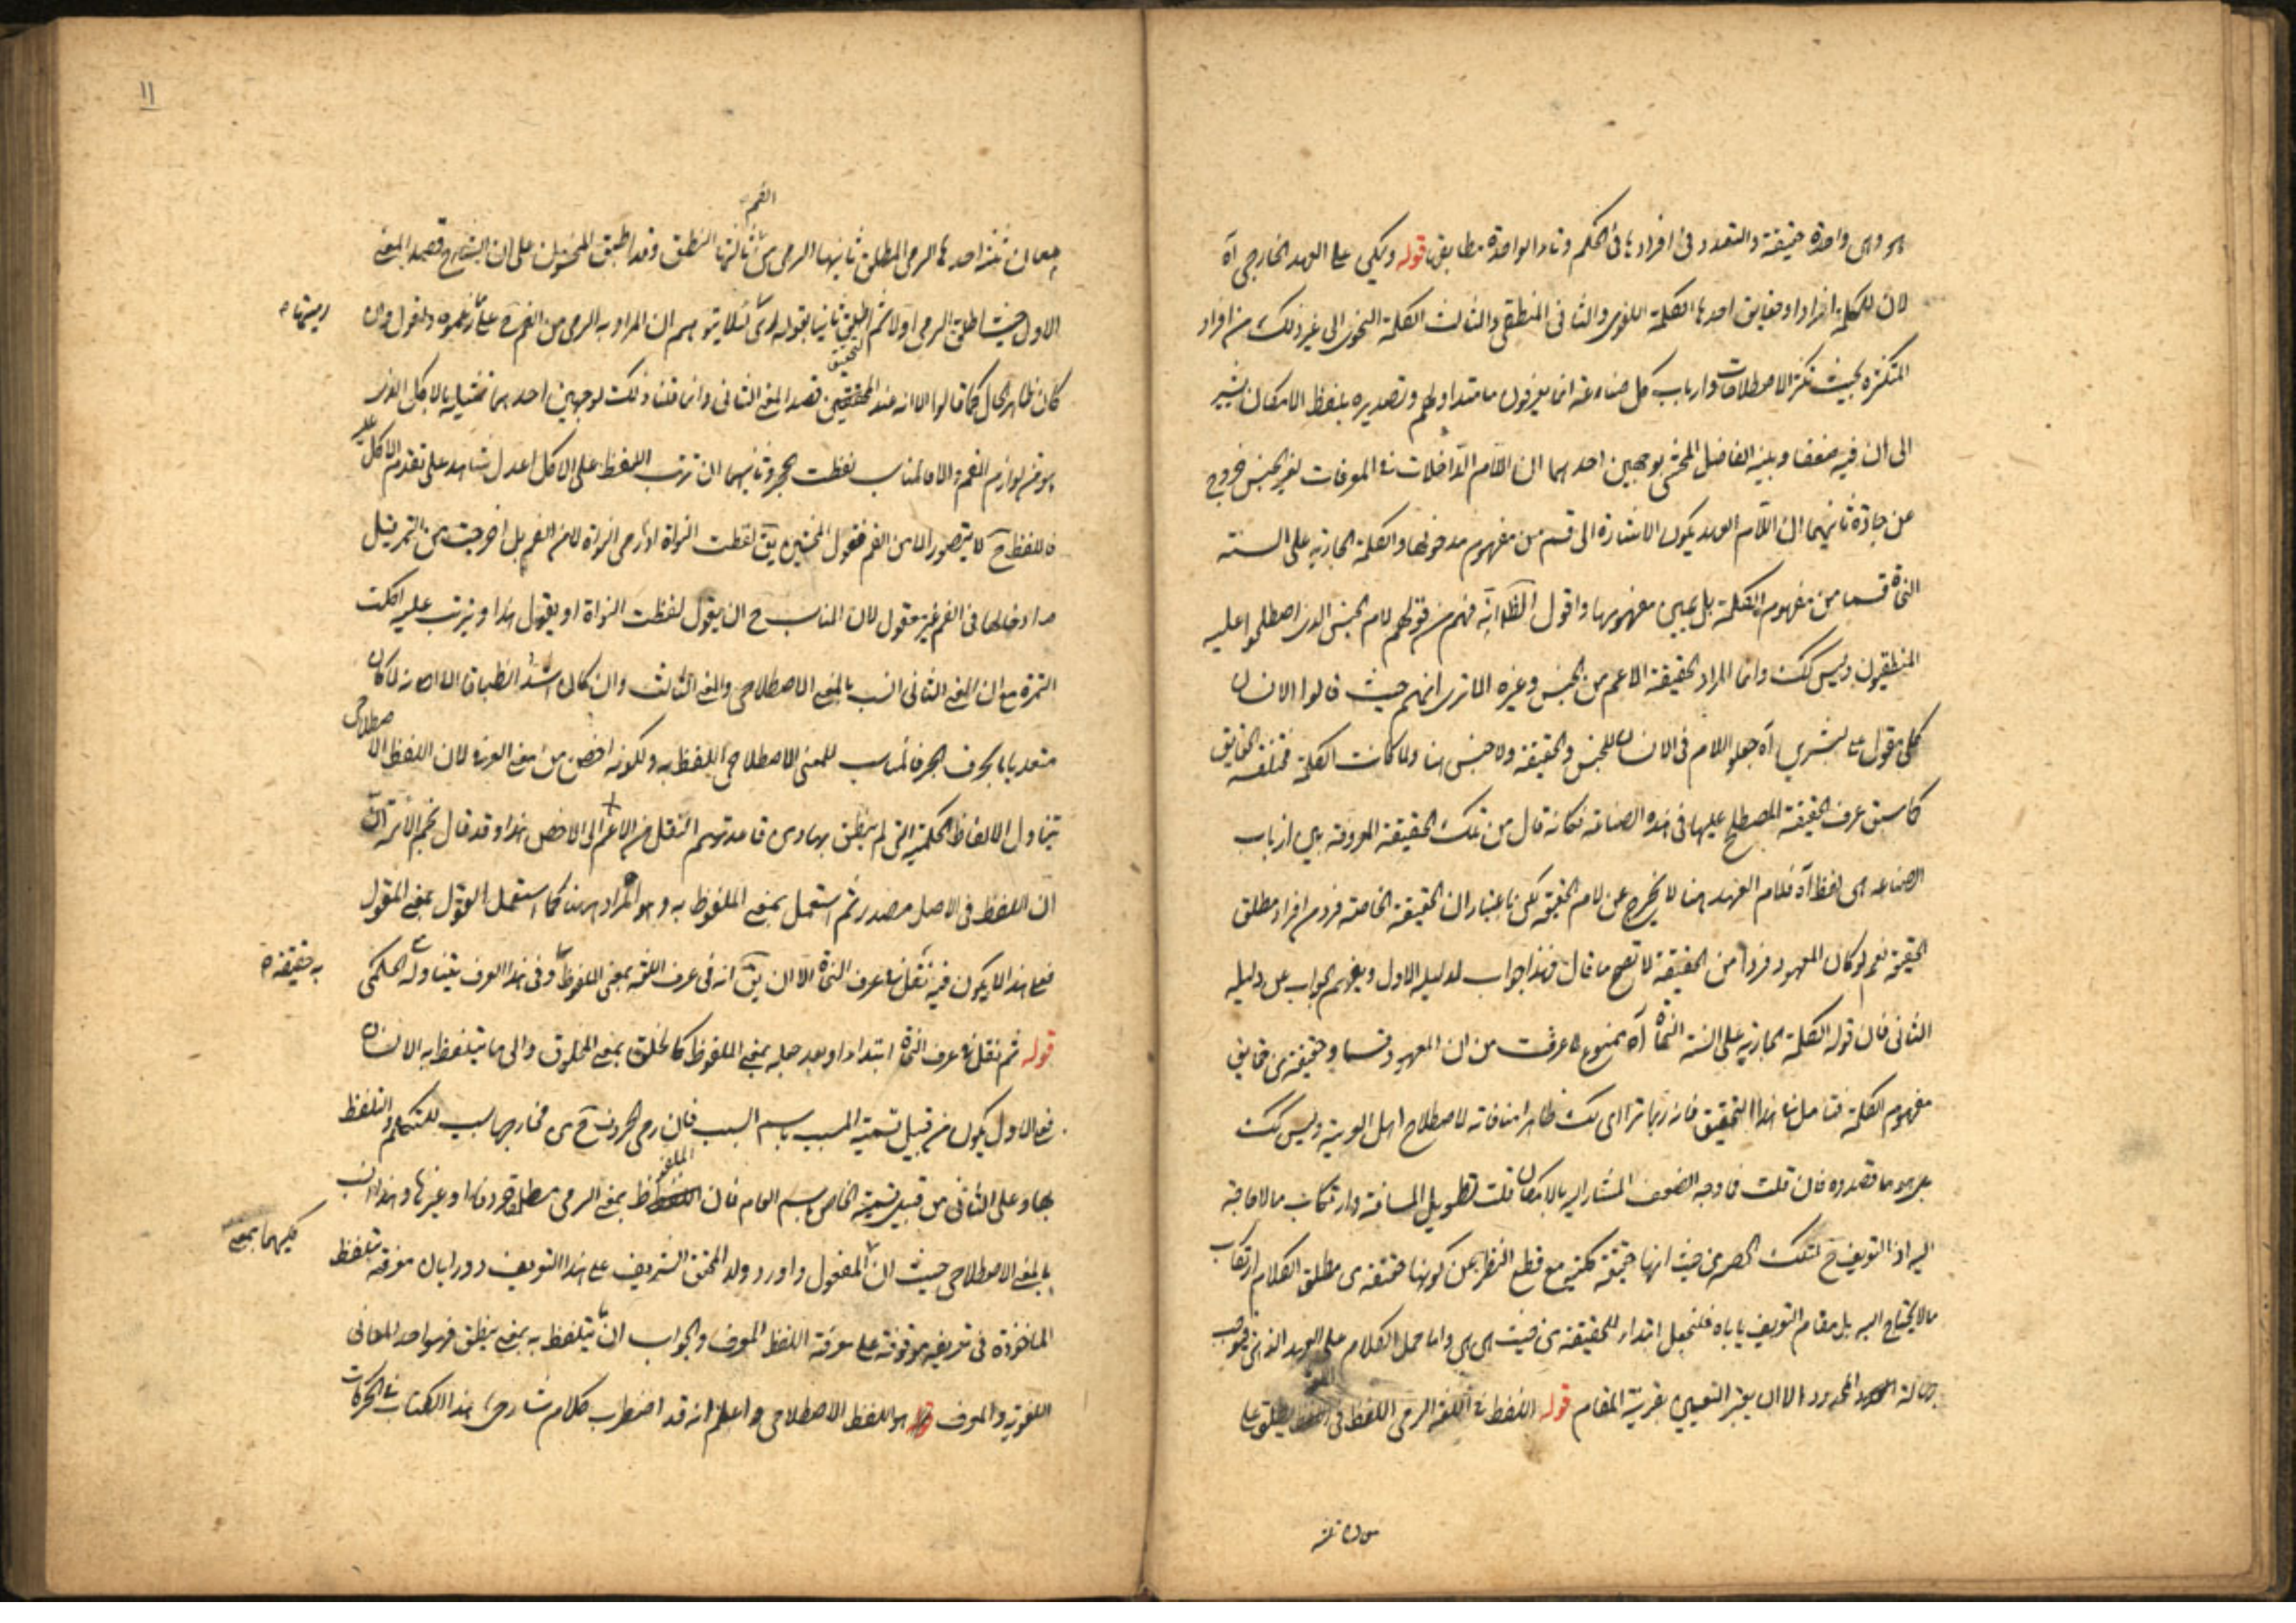 هو وهى واحدة حقيقة والتعدد فى افرادها فى الحكم وتاء الواحدة مطابق قوله ويمكن على العهد الخارجى آه
لان للكلمة افرادا ومعانى احدها الكلمة اللغوى والثانى المنطقى والثالث الكلمة النحوى الى غير ذلك من افراد
المتكثرة بحيث تكثر الاصطلاحات وارباب كل صناعة انما يعرفون ما متداولهم وتصديره بلفظ الامكان يشير
الى ان فيه ضعفا وبينه الفاضل المحشى بوجهين احدهما ان اللام الداخلات فى المعرفات لغير الجنس خروج
عن جادة ثانيهما ان اللام العهد يكون الاشارة الى قسم من مفهوم مدخولها والكلمة الجارية على السنة
النحاة قسما من مفهوم الكلمة بل عين مفهومها واقول الظ انه فهم من قولهم لام الجنس الذى اصطلحوا عليه
المنطقيون وليس كك وانما المراد الحقيقة الاعم من الجنس وغيره الا ترى انهم حيث قالوا الانسان
كلى مقول على كثيرين آه جعلوا اللام فى الانسان للجنس والحقيقة ولا جنس هنا ولما كانت الكلمة مختلفة الحقايق
كما سبق عرف الحقيقة المصطلح عليها فى هذه الصناعة فكانه قال من تلك الحقيقة المعروفة بين ارباب
الصناعة هى لفظ آه فلام العهد هنا لا يخرج عن لام الحقيقة لكن باعتبار ان الحقيقة الخاصة فرد من افراد مطلق
الحقيقة نعم لو كان المعهود فردا من الحقيقة لا تصح ما قال فهذا جواب لدليله الاول ويفهم الجواب عن دليله
الثانى فان قوله الكلمة الجارية على السنة النحاة آه ممنوع لما عرفت من ان المعهود قسما وحقيقة من حقايق
مفهوم الكلمة فتامل فى هذا التحقيق فانه ربما تراءى لك ظاهرا منافاته لاصطلاح اهل العربية وليس كك
بل هو ما قصدوه فان قلت فما وجه الضعف المشار اليه بالامكان قلت تطويل المسافة وارتكاب ما لا حاجة
اليه اذ التعريف ح لتلك الحصة من حيث انها حقيقة كلية مع قطع النظر عن كونها حقيقة من مطلق الكلام ارتكاب
ما لا يحتاج اليه بل مقام التعريف ياباه فلنجعل ابتداء للحقيقة من حيث هى هى واما حمل الكلام على العهد الذهنى فيوجب
جهالة المحدود الا ان يعتبر التعيين بقرينة المقام قوله اللفظ فى اللغة الرمى اللفظ فى اللغة يطلق على
معان ثلثة احدها الرمى المطلق ثانيها الرمى من الفم ثالثها النطق وقد اطبق المحشون على ان الشارح قصد المعنى
الاول حيث اطلق الرمى اولا ثم اطلق ثانيا بقوله اى لئلا يتوهم ان المراد به الرمى من الفم على ما زعموه ونقول وان رميتها
كان ظاهر الحال كما قالوا الا انه عند التحقيق قصد المعنى الثانى وانما قلنا ذلك لوجهين احدهما تمثيله بالاكل الذى
هو من لوازم الفم والا فالمناسب لفظت الحجر وثانيهما ان ترتب اللفظ على الاكل اعدل شاهد على تقدم الاكل عليه
فاللفظ ح لا يتصور الا من الفم فقول المحشين يق لفظت النواة اذا رمى النواة لا من الفم بل اخرجت من التمر قبل
ادخالها فى الفم غير معقول لان المناسب ح ان يقول لفظت النواة او يقول هذا ويرتب عليه اكلت
التمرة مع ان المعنى الثانى انسب بالمعنى الاصطلاحى والمعنى الثالث وان كان اشد انطباقا الا انه لما كان
متعديا بحرف الجر فالمناسب للمعنى الاصطلاحى الملفوظ به ولكونه اخص من المعنى العرفى لان اللفظ الاصطلاحى
يتناول الالفاظ الحكمية التى لم ينطق بها ومن قاعدتهم النقل من الاعم الى الاخص هذا وقد قال نجم الائمة ان
ان اللفظ فى الاصل مصدر ثم استعمل بمعنى الملفوظ به وهو المراد ههنا كما استعمل القول بمعنى المقول
فعلى هذا لا يكون فيه نقل فى عرف النحاة الا ان يق انه فى عرف اللغة بمعنى الملفوظ وفى هذا العرف يتناوله الحكمى به حقيقة
قوله ثم نقل فى عرف النحاة ابتداء او بعد جعله بمعنى الملفوظ كالخلق بمعنى المخلوق والى ما يتلفظ به الانسان
فعلى الاول يكون من قبيل تسمية المسبب باسم السبب فان رمى الحروف ح من مخارجها سبب للتكلم والتلفظ
بها وعلى الثانى من قبيل تسمية الخاص باسم العام فان الملفوظ بمعنى الرمى مطلقا حروفا او غيرها وهذا انسب
بالمعنى الاصطلاحى حيث ان المفعول واورد ولد المحقق الشريف على هذا التعريف دورا بان معرفة تتلفظ فيهما بمعنى
الماخوذة فى تعريفه موقوفة على معرفة اللفظ المعرف والجواب ان يتلفظ به بمعنى ينطق فهو احد المعانى
اللغوية والمعرف هو اللفظ الاصطلاحى واعلم انه قد اضطرب كلام شارحى هذا الكتاب فى الحركات
١١